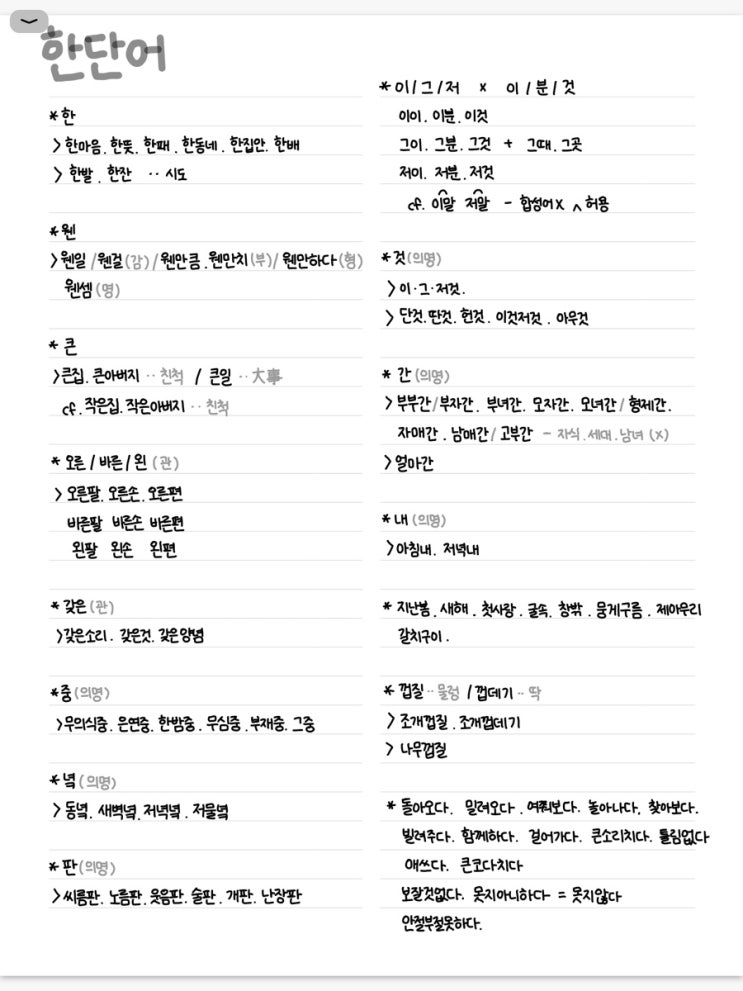 한단어
*한
> 한마음. 한뜻. 한때. 한동네. 한집안. 한배
> 한발. 한잔 ‥ 시도
*웬
> 웬일 / 웬걸(감) / 웬만큼. 웬만치(부) / 웬만하다(형)
웬셈(명)
* 큰
> 큰집. 큰아버지 ‥ 친척 / 큰일 ‥ 大事
cf. 작은집. 작은아버지 ‥ 친척
* 오른 / 바른 / 왼 (관)
> 오른팔. 오른손. 오른편
바른팔 바른손 바른편
왼팔 왼손 왼편
* 갖은(관)
> 갖은소리. 갖은것. 갖은양념
*중(의명)
> 무의식중. 은연중. 한밤중. 무심중. 부재중. 그중
* 녘(의명)
> 동녘. 새벽녘. 저녁녘. 저물녘
* 판(의명)
> 씨름판. 노름판. 웃음판. 술판. 개판. 난장판
* 이/그/저 x 이/분/것
이이. 이분. 이것
그이. 그분. 그것 + 그때. 그곳
저이. 저분. 저것
cf. 이말 저말 - 합성어x ^ 허용
* 것(의명)
> 이·그·저것.
> 단것. 딴것. 헌것. 이것저것. 아우것
* 간(의명)
> 부부간/부자간. 부녀간. 모자간. 모녀간/형제간.
자매간. 남매간/고부간 - 자식. 세대. 남녀 (x)
> 얼마간
* 내(의명)
> 아침내. 저녁내
* 지난봄. 새해. 첫사랑. 굴속. 창밖. 뭉게구름. 제아무리
갈치구이.
* 껍질 ‥ 물렁 / 껍데기 ‥ 딱
> 조개껍질. 조개껍데기
> 나무껍질
* 돌아오다. 밀려오다. 여쭈보다. 놀아나다. 찾아보다.
빌려주다. 함께하다. 걸어가다. 큰소리치다. 틀림없다
애쓰다. 큰코다치다
보잘것없다. 못지아니하다 = 못지않다
안절부절못하다.